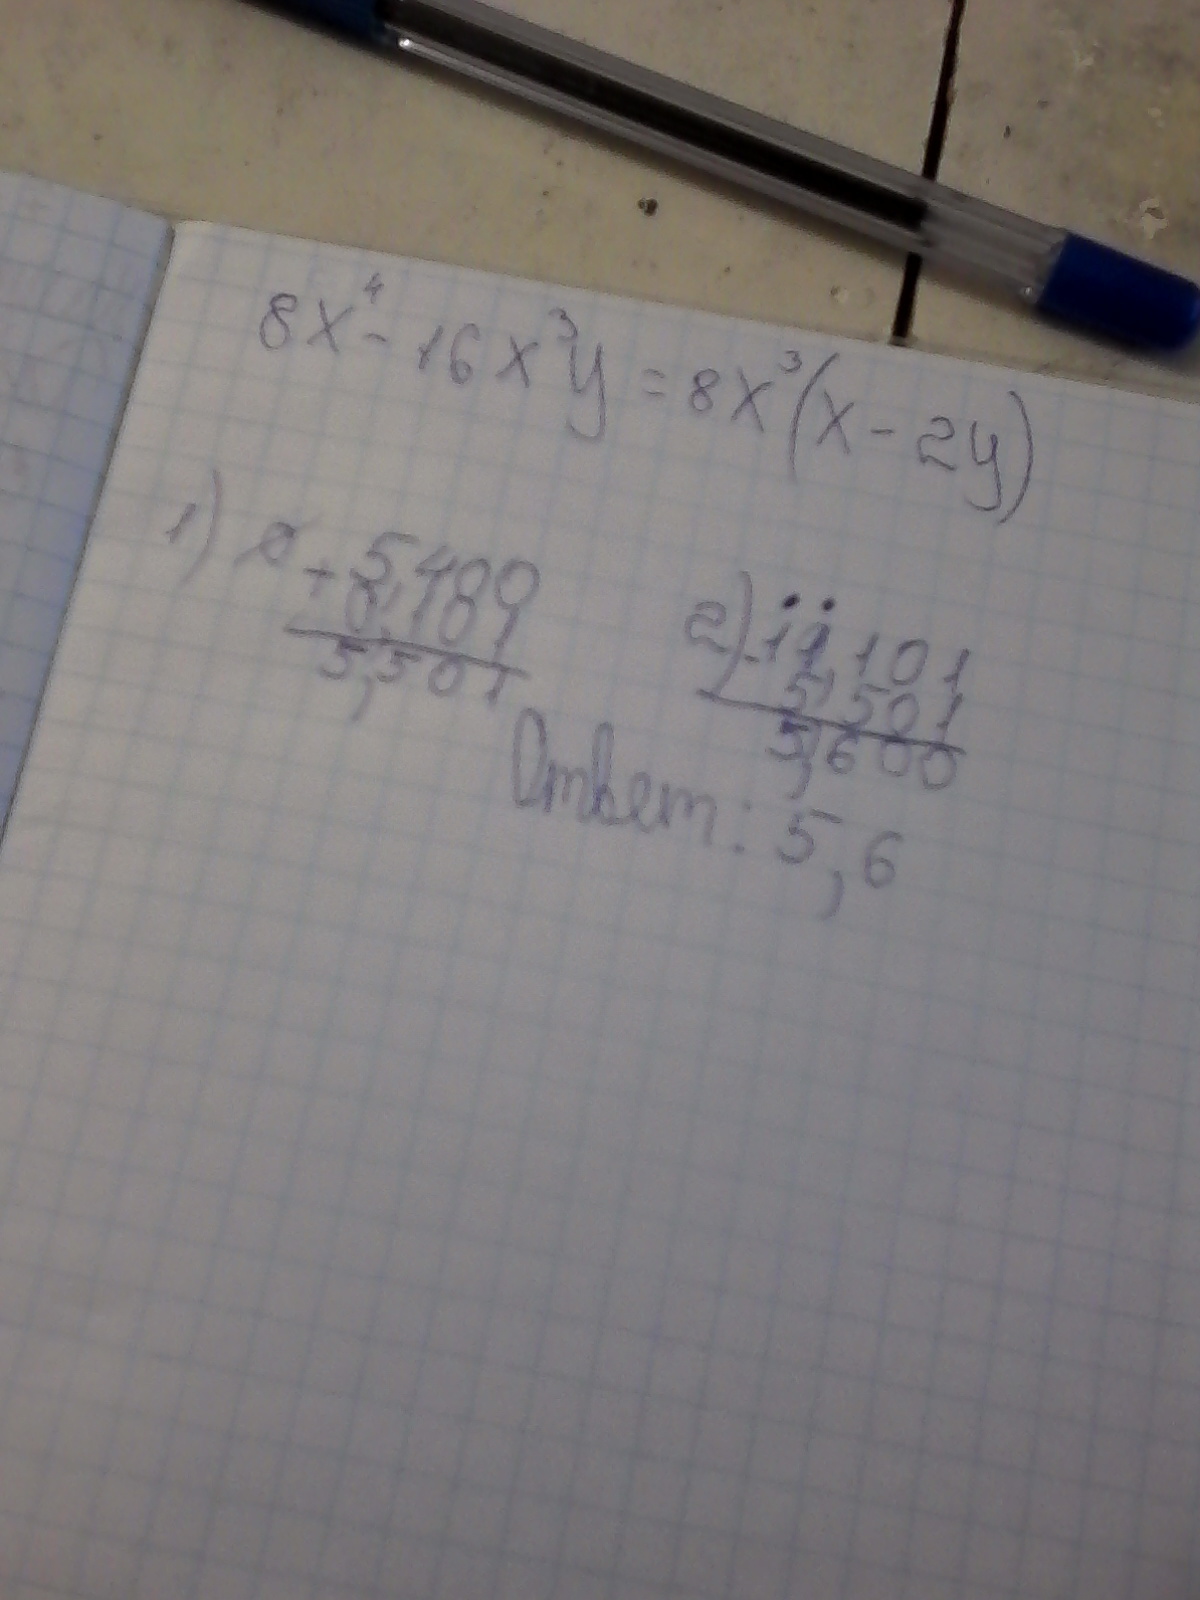 8x⁴ - 16x³y = 8x³(x - 2y)
1)
+ 5,489
5,501
2) - 11,101
5,501
5,600
Ответ: 5,6